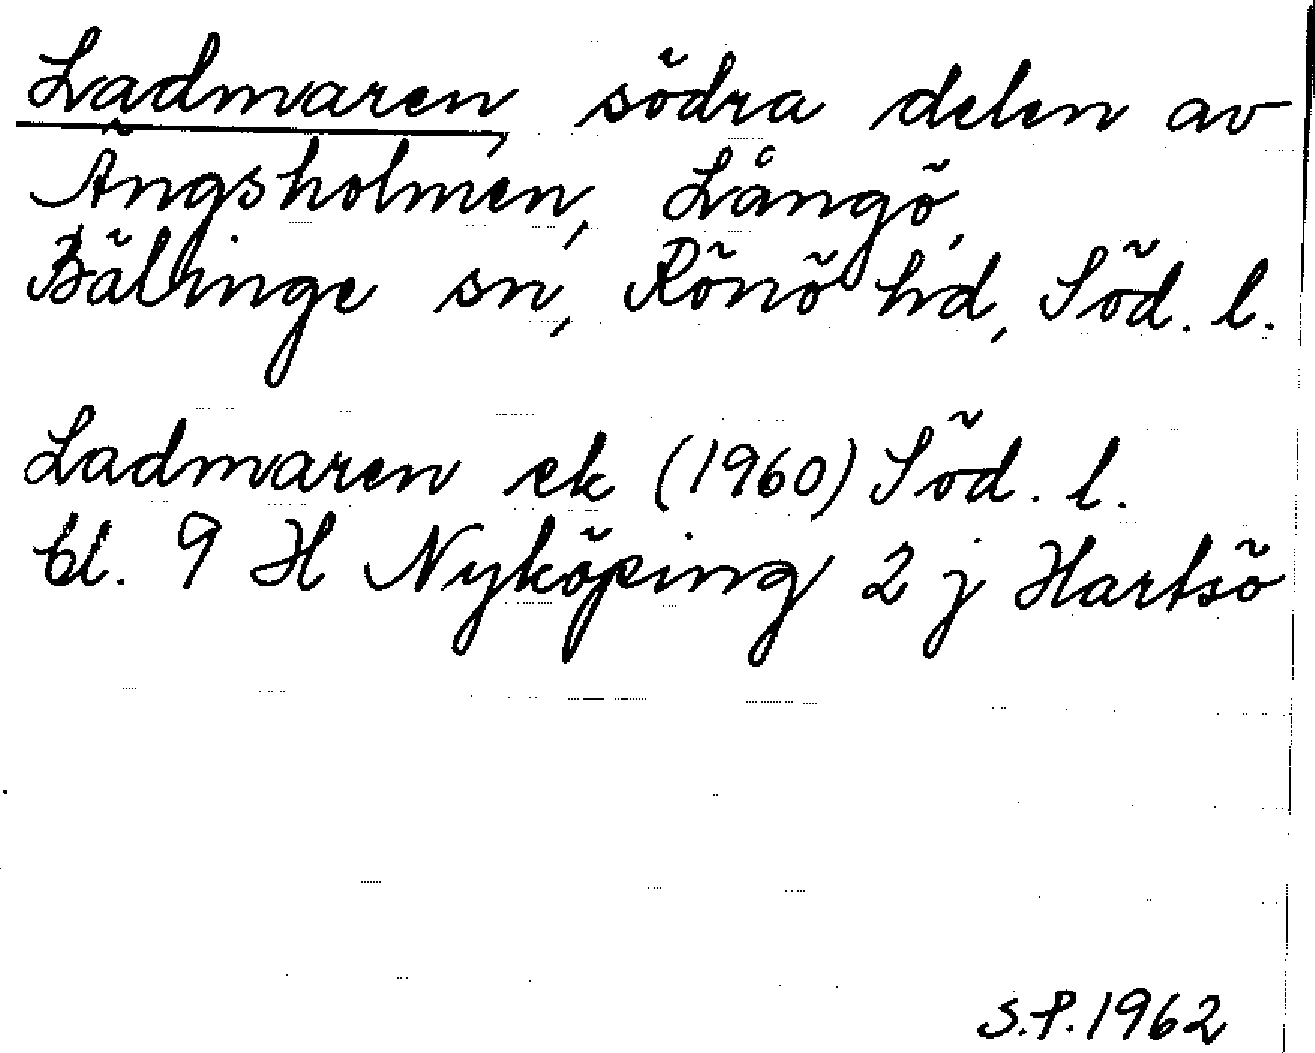 Ladmaren, södra delen av
Ängsholmen, Långö,
Bälinge sn, Rönö hd, Söd. l.
Ladmaren ek (1960) Söd. l.
bl. 9 H Nyköping 2 j Hartsö
S.P. 1962